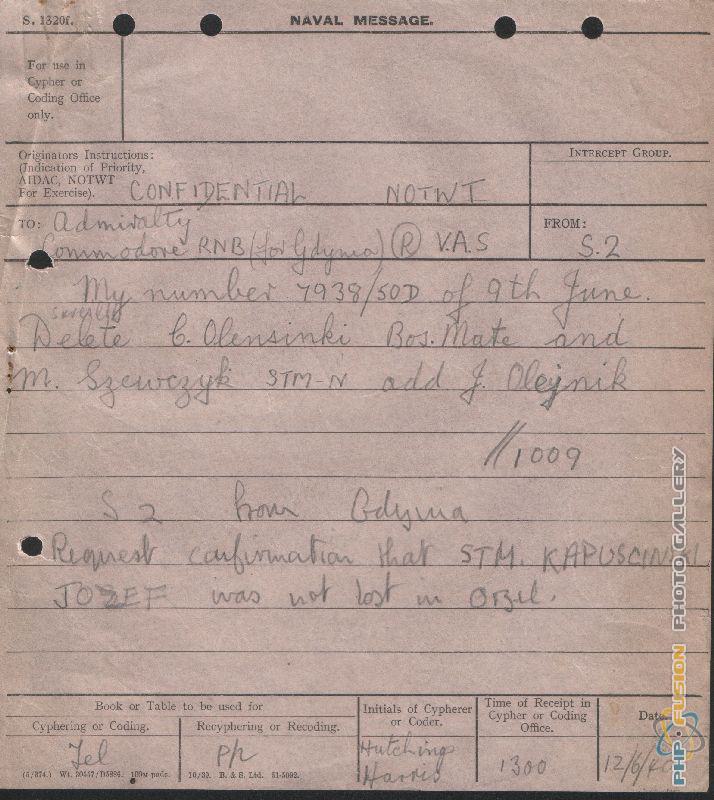 S. 1320f.
NAVAL MESSAGE.
For use in
Cypher or
Coding Office
only.
Originators Instructions:
(Indication of Priority,
AIDAC, NOTWT
For Exercise).
CONFIDENTIAL NOTWT
INTERCEPT GROUP.
TO: Admiralty
Commodore RNB (for Gdynia) (R) V.A.S
FROM:
S.2
My number 7938/SOD of 9th June.
Delete C. Olensinki Bos. Mate and
M. Szewczyk STM-N add J. Olejnik
//1009
S 2 from Gdynia
Request confirmation that STM. KAPUSCINSKI
JOZEF was not lost in Orzel.
Book or Table to be used for
Cyphering or Coding.
Recyphering or Recoding.
Initials of Cypherer
or Coder.
Time of Receipt in
Cypher or Coding
Office.
Date.
Tel
P/L
Hutchings
Harris
1300
12/6/40
(5/374.) Wt. 20557/D5886. 100M pads. 10/39. B. & S. Ltd. 51-5092.
PHP-FUSION PHOTO GALLERY